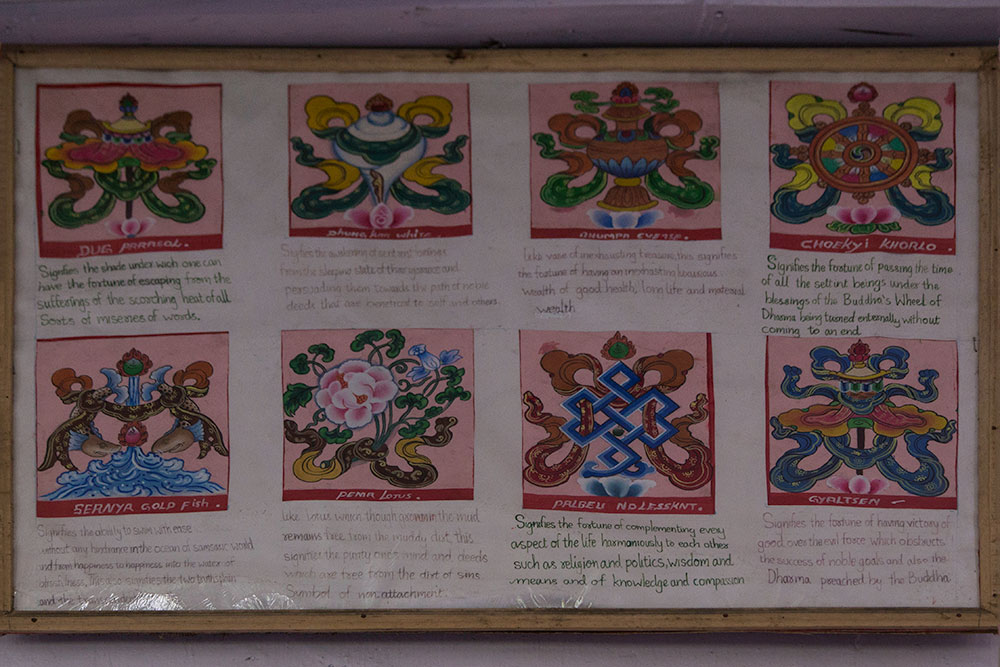 DUG PARAGOL.
Signifies the shade under wich one can
have the fortune of escaping from the
sufferings of the scorching heat of all
Sorts of miseries of words.
Dhung kar white.
Signfies the awakening of sentient beings
from the sleeping state of their ignorance and
persuading them towards the path of noble
deeds that are beneficial to self and others.
BHUMPA
Like vase of inexhausting treasure, this signifies
the fortune of having an inexhausting luxurious
wealth of good health, lonn life and material
wealth
CHOEKYI KHORLO.
Signifies the fortune of passing the time
of all the settint beings under the
blessings of the Buddha's Wheel of
Dharma being turned enternally without
coming to an end.
SERNYA GOLD FISH.
Signifies the ability to swim with ease
without any hindrance in the ocean of samsaric world
and from happiness to happiness into the water of
this also signifies the two
and the
PEMA LOTUS.
like lotus which though grown in the mud
remains free from the muddy dirt, this
signifies the purity one's mind and deeds
which are free from the dirt of sins.
Symbol of non-attachment.
PALBEU
Signifies the fortune of complementing every
aspect of the life harmoniously to each other
such as religion and politics, wisdom and
means and of knowledge and compassion
GYALTSEN
Signifies the fortune of having victory of
good over the evil force which obstructs
the success of noble goals and also the
Dharma preached by the Buddha.